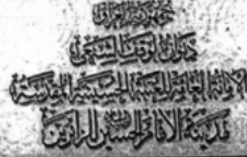 جمهورية العراق
ديوان الوقف الشيعي
الامانة العامة للعتبة الحسينية المقدسة
مدينة الامام الحسين للزائرين